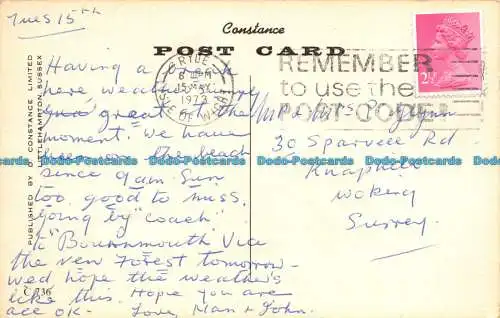 Tues 15th
Constance
POST CARD
PUBLISHED BY D. CONSTANCE LIMITED
LITTLEHAMPTON, SUSSEX
RYDE
15 MY
1973
ISLE OF WIGHT
REMEMBER
to use the
POST CODE
2½P
Having a week
here weather
great the
moment. We have
the beach
since 9am. Sun
too good to miss.
going by "coach"
to Bournmouth Via
the new Forest tomorrow
wed hope the weather's
like this. Hope you are
all OK- Love, Nan + John.
Mr + Mrs P. Glynn
30 Sparvell Rd
Knaphill
Woking
Surrey.
C 736
Dodo-Postcards Dodo-Postcards Dodo-Postcards Dodo-Postcards Dodo-Postcards